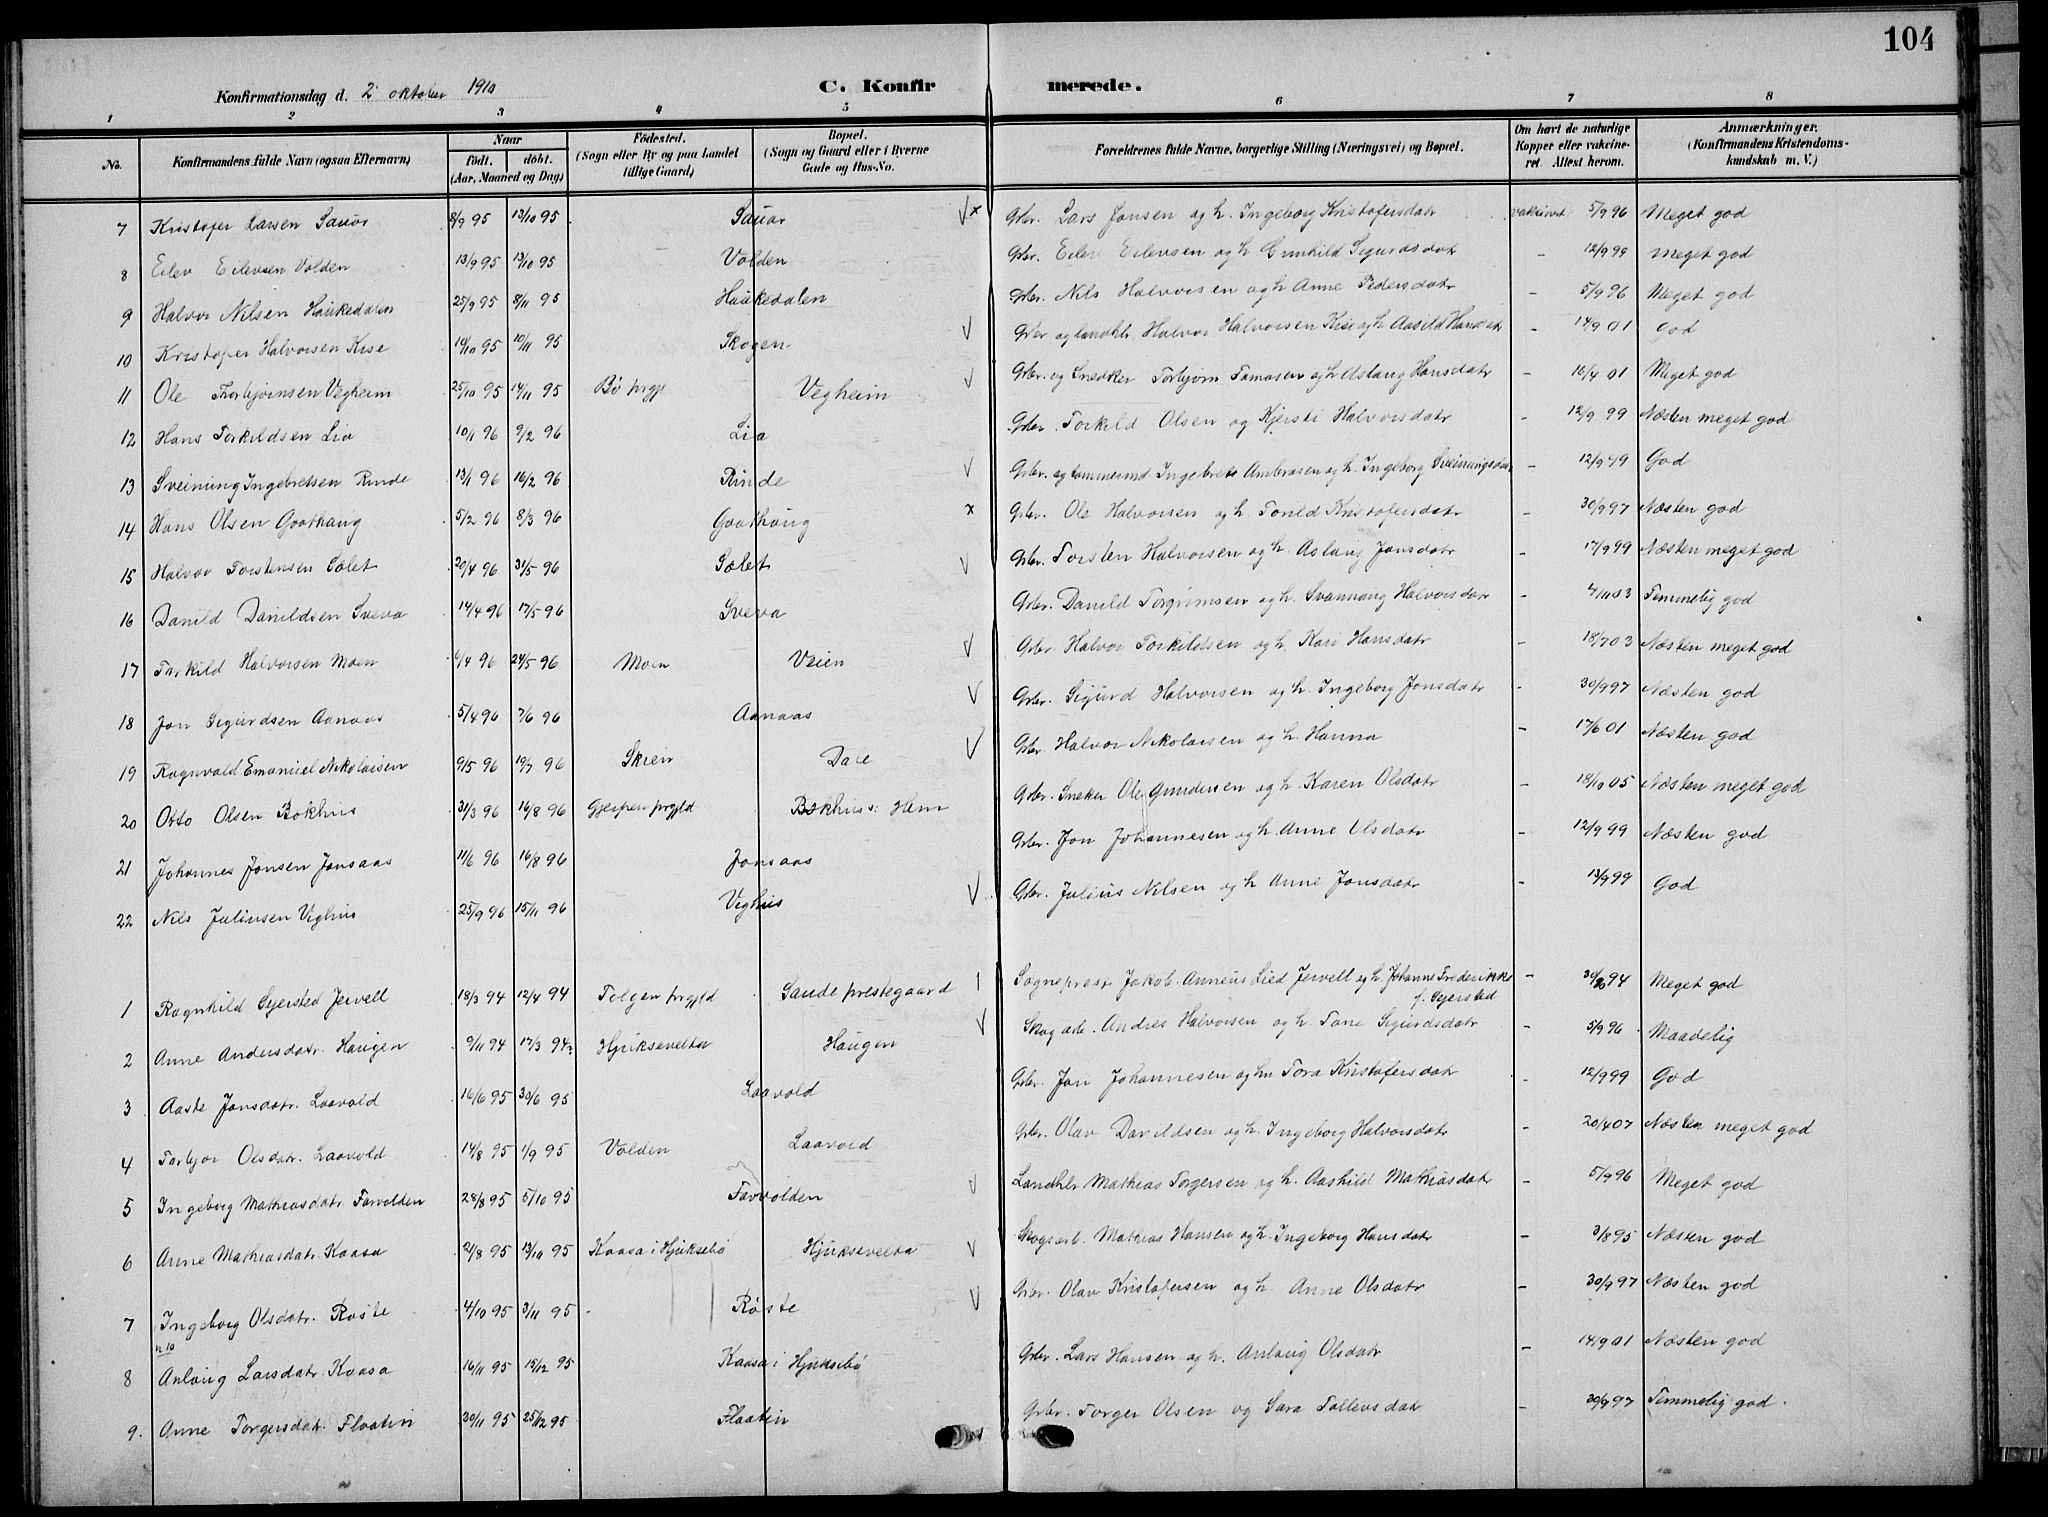 104
Konfirmationsdag d. 2 oktober 1910 C. Konfirmerede.
1 2 3 4 5 6 7 8
No. Konfirmandens fulde Navn (ogsaa Efternavn) Naar födt. döbt. (Aar, Maaned og Dag) Födested. (Sogn eller By og paa Landet tillige Gaard) Bopæl. (Sogn og Gaard eller i Byerne Gade og Hus-No. Forældrenes fulde Navne, borgerlige Stilling (Næringsvei) og Bopæl. Om havt de naturlige Kopper eller vakcineret. Attest herom. Anmærkninger. (Konfirmandens Kristendomskundskab m. V.)
7 Kristofer Larsen Sauar 8/9 95 13/10 95 - Sauar Gbr. Lars Jonsen og h. Ingeborg Kristofersdatr vaksinert 5/9 96 Meget god
8 Eilev Eilevsen Volden 13/9 95 13/10 95 Volden Gbr. Eilev Eilevsen og h Gunhild Sigurdsdatr - 12/9 99 Meget god
9 Halvor Nilsen Haukedalen 25/9 95 8/11 95 Haukedalen Gbr. Nils Halvorsen og h Anne Pedersdatr - 5/9 96 Meget god
10 Kristofer Halvorsen Kise 14/10 95 10/11 95 Skogen Gbr og landhl. Halvor Halvorsen Kise og h Aasild Hansdatr - 14/9 01 God
11 Ole Thorbjørnsen Vegheim 25/10 95 14/11 95 Bø prgjl Vegheim Gbr. og Snedker Torbjørn Tomasen og h Aslaug Hansdatr - 16/4 01 Meget god
12 Hans Torkildsen Lia 10/1 96 9/2 96 Lia Gbr. Torkild Olsen og Kjersti Halvorsdatr - 12/9 99 Næsten meget god
13 Sveinung Ingebretsen Rinde 13/1 96 16/2 96 Rinde Gbr. og tømmermd Ingebret Ambrosen og h. Ingeborg Sveinungsdatr - 12/9 99 God
14 Hans Olsen Goathaug 5/2 96 8/3 96 Goathaug Gbr. Ole Halvorsen og h. Torild Kristofersdatr - 30/9 97 Næsten god
15 Halvor Torstensen Sølet 20/4 96 31/5 96 Sølet Gbr. Torsten Halvorsen og h. Aslaug Jonsdatr - 17/9 99 Næsten meget god
16 Danild Danildsen Sveva 14/4 96 17/5 96 Sveva Gbr. Danild Torgrimsen og h. Svannaug Halvorsdatr - 03 Temmelig god
17 Torkild Halvorsen Moen 96 24/5 96 Moen Veien Gbr. Halvor Torkildsen og h. Kari Hansdatr - 18/7 03 Næsten meget god
18 Jon Sigurdsen Aanaas 5/4 96 7/6 96 Aanaas Gbr. Sigurd Halvorsen og h. Ingeborg Jonsdatr - 30/9 97 Næsten god
19 Ragnvald Emanuel Nikolaisen 9/5 96 19/7 96 Skien Dale Gbr Halvor Nikolaisen og h. Hanna - 17/6 01 Næsten god
20 Otto Olsen Bokhus 31/3 96 16/8 96 Gjerpen prgjld Bokhus: Hem Gbr. Sneker Ole Gundersen og h. Karen Olsdatr - 18/10 05 Næsten meget god
21 Johannes Jonsen Jonsaas 11/6 96 16/8 96 Jonsaas Gbr. Jon Johannesen og h. Anne Olsdatr - 12/9 99 Næsten god
22 Nils Juliusen Veghus 25/9 96 15/11 96 Veghus Gbr. Julius Nilsen og h Anne Jonsdatr - 13/9 99 God
1 Ragnhild Gjersted Jervell 18/3 94 12/4 94 Tolgen prgjld Saude prestegaard Sogneprest Jakob Anneus Lied Jervell og h. Johanne Frederikke f. Gjersted - 94 Meget god
2 Anne Andersdatr. Haugen 9/11 94 17/3 94 Hjuksevelta Haugen Skog arb. Andres Halvorsen og h. Tone Sigurdsdatr - 5/9 96 Maadelig
3 Aaste Jonsdatr. Laavold 16/6 95 30/6 95 Laavold Gbr. Jon Johannesen og h Tora Kristofersdatr - 12/9 99 God
4 Torbjør Olsdatr. Laavold 14/8 95 1/9 95 Volden Laavold Gbr. Olav Davildsen og h. Ingeborg Halvorsdatr - 20/4 07 Næsten meget god
5 Ingeborg Mathiasdatr Farvolden 28/8 95 5/10 95 Farvolden Landhlr Mathias Torgersen og h. Aashild Mathiasdatr - 5/9 96 Meget god
6 Anne Mathiasdatr. Kaasa 21/8 95 13/10 95 Kaasa i Hjuksebø Hjuksevelta Skogsarb. Mathias Hansen og h. Ingeborg Hansdatr - 3/8 95 Næsten god
7 Ingeborg Olsdatr. Røste 4/10 95 3/11 95 - Røste Gbr. Olav Kristofersen og h Anne Olsdatr - 30/9 97 Næsten god
n 10
8 Anlaug Larsdatr. Kaasa 16/11 95 15/12 95 Kaasa i Hjuksebø Gbr. Lars Hansen og h. Anlaug Olsdatr - 14/9 01 Næsten god
9. Anne Torgersdatr Flaatin 30/11 95 25/12 95 Flaatin Gbr. Torger Olsen og Sara Tollevsdatr - 30/9 97 Temmelig god.